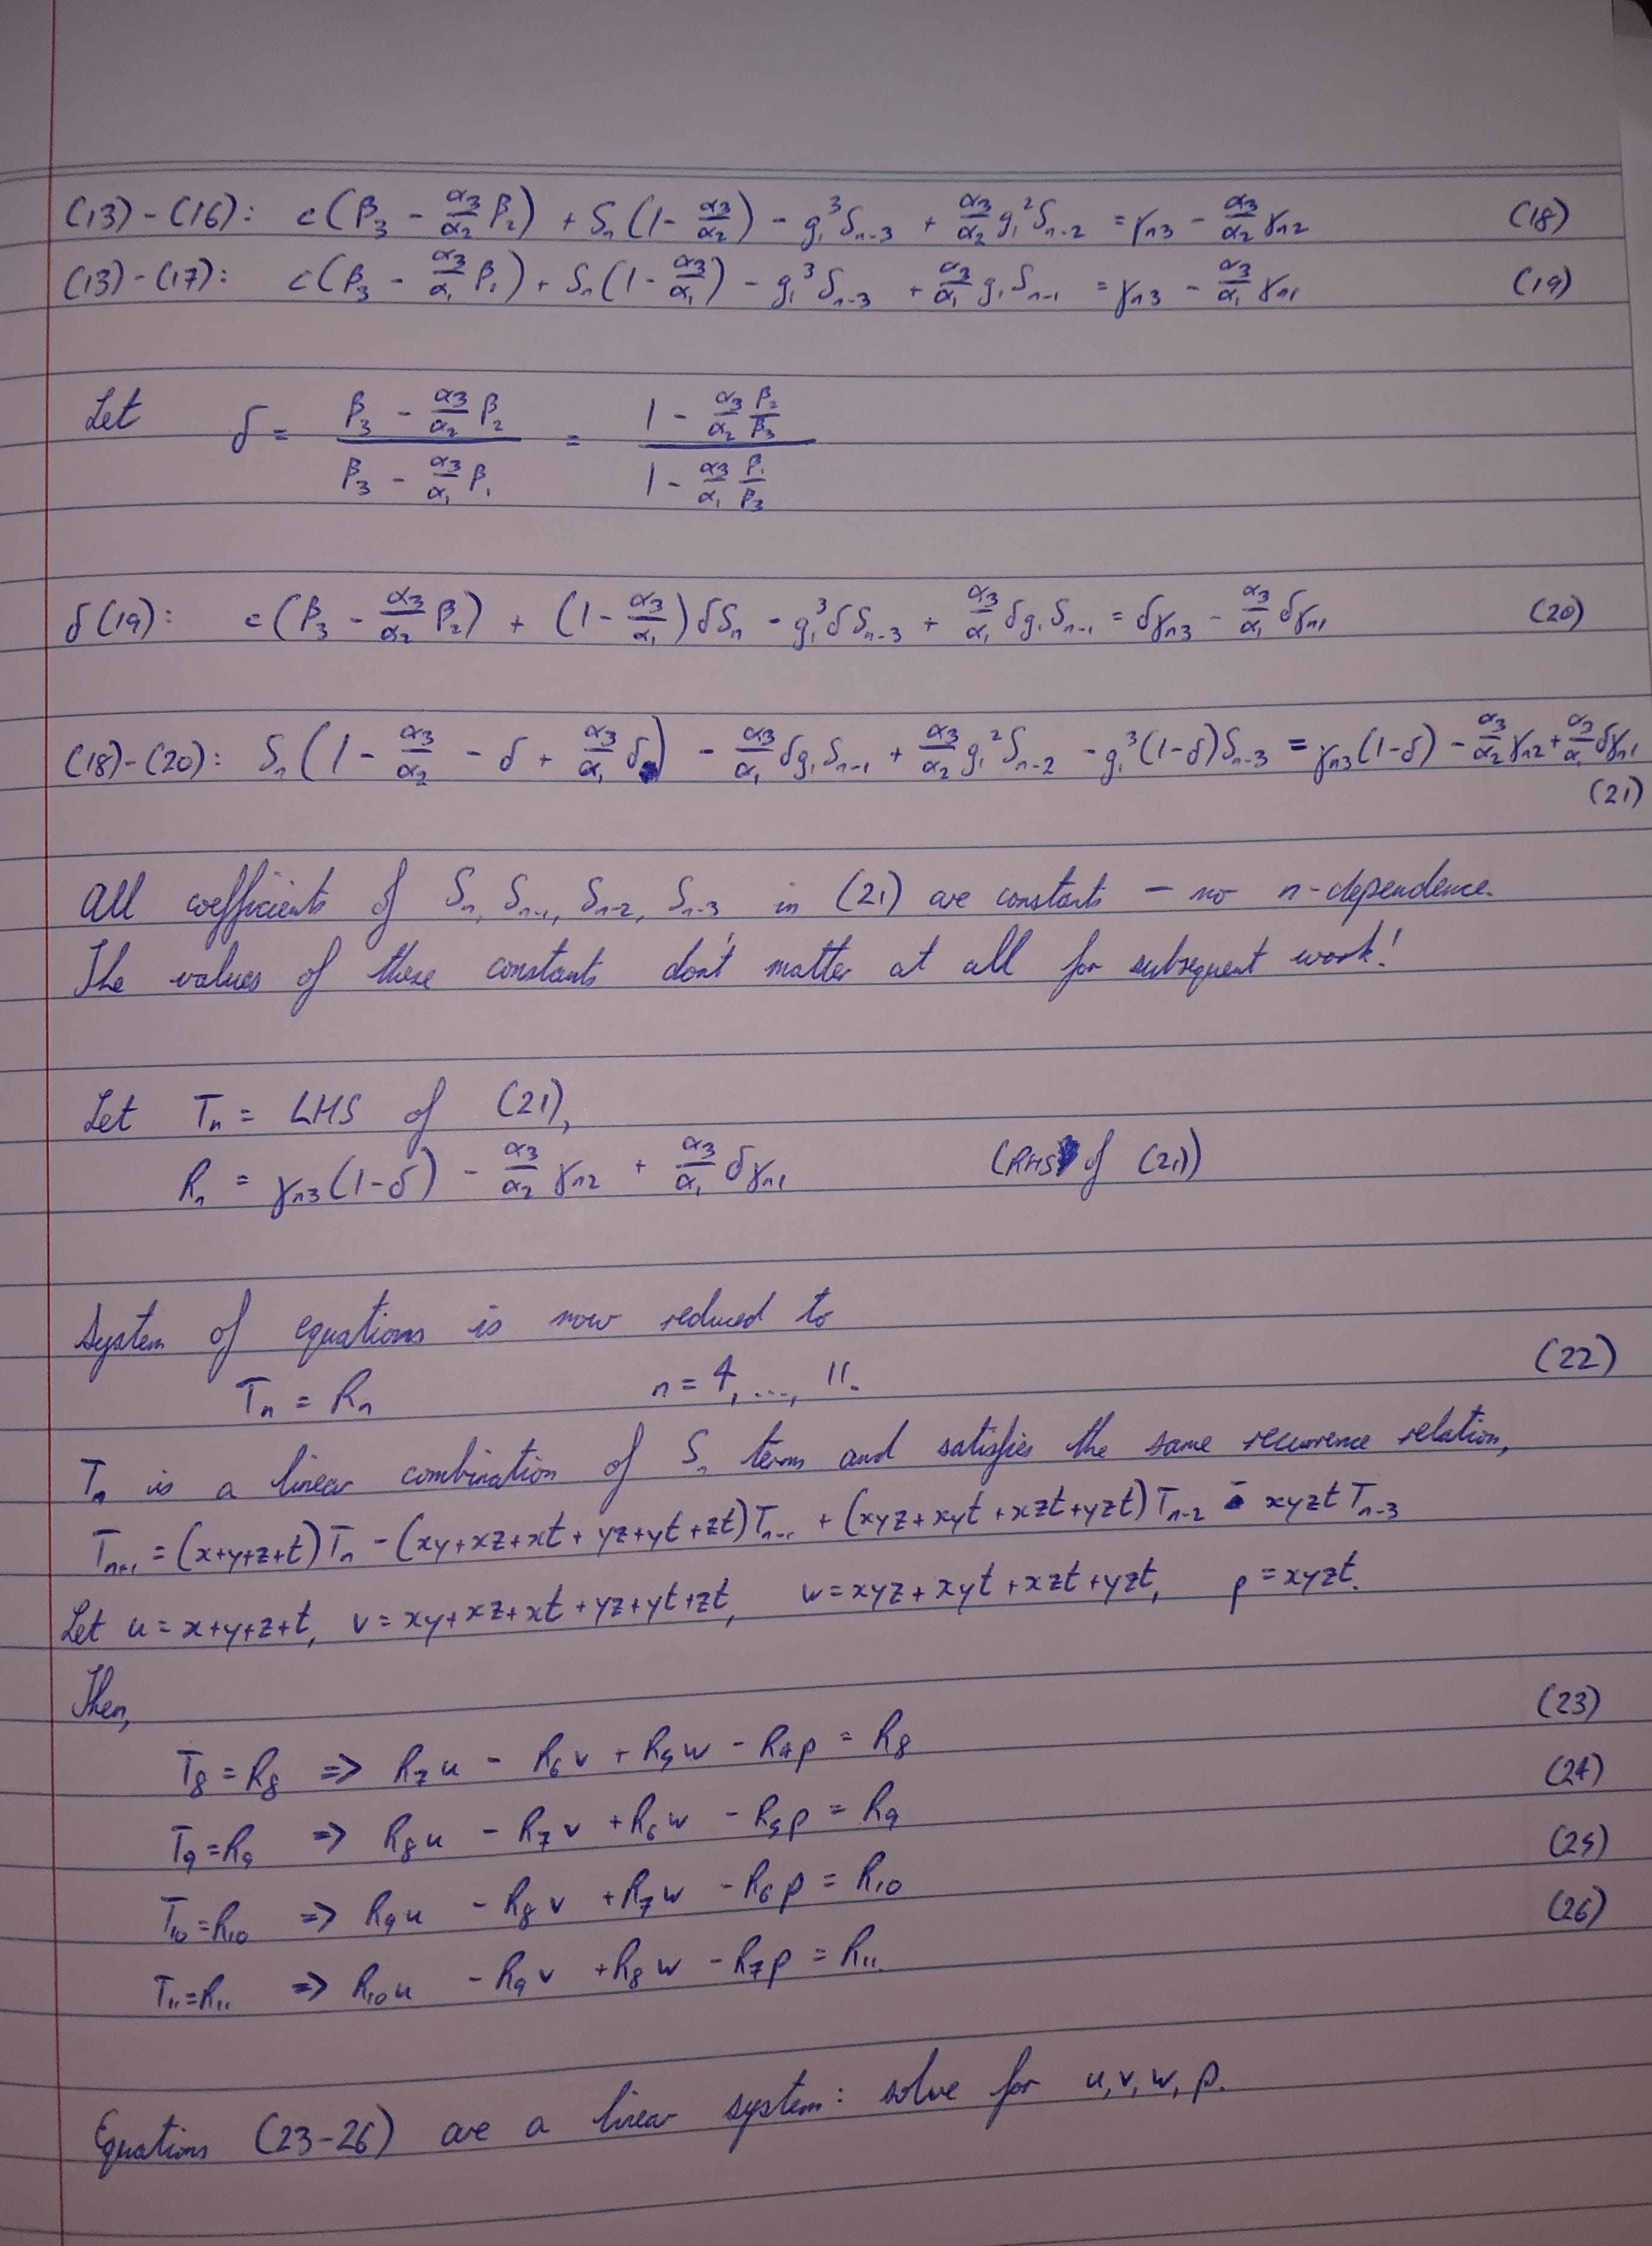 (13)-(16): c(β₃ - α₃/α₂ β₂) + Sₙ(1 - α₃/α₂) - g₁³Sₙ₋₃ + α₃/α₂ g₁²Sₙ₋₂ = γₙ₃ - α₃/α₂ γₙ₂ (18)
(13)-(17): c(β₃ - α₃/α₁ β₁) + Sₙ(1 - α₃/α₁) - g₁³Sₙ₋₃ + α₃/α₁ g₁Sₙ₋₁ = γₙ₃ - α₃/α₁ γₙ₁ (19)
Let δ = (β₃ - α₃/α₂ β₂)/(β₃ - α₃/α₁ β₁) = (1 - α₃/α₂ β₂/β₃)/(1 - α₃/α₁ β₁/β₃)
δ(19): c(β₃ - α₃/α₂ β₂) + (1 - α₃/α₁)δSₙ - g₁³δSₙ₋₃ + α₃/α₁ δg₁Sₙ₋₁ = δγₙ₃ - α₃/α₁ δγₙ₁ (20)
(18)-(20): Sₙ(1 - α₃/α₂ - δ + α₃/α₁ δ) - α₃/α₁ δg₁Sₙ₋₁ + α₃/α₂ g₁²Sₙ₋₂ - g₁³(1-δ)Sₙ₋₃ = γₙ₃(1-δ) - α₃/α₂ γₙ₂ + α₃/α₁ δγₙ₁
(21)
All coefficients of Sₙ, Sₙ₋₁, Sₙ₋₂, Sₙ₋₃ in (21) are constants - no n-dependence.
The values of these constants don't matter at all for subsequent work!
Let Tₙ = LHS of (21),
Rₙ = γₙ₃(1-δ) - α₃/α₂ γₙ₂ + α₃/α₁ δγₙ₁ (RHS of (21))
System of equations is now reduced to
Tₙ = Rₙ n = 4, ..., 11. (22)
Tₙ is a linear combination of Sₙ terms and satisfies the same recurrence relation,
Tₙ₊₁ = (x+y+z+t)Tₙ - (xy+xz+xt+yz+yt+zt)Tₙ₋₁ + (xyz+xyt+xzt+yzt)Tₙ₋₂ - xyztTₙ₋₃
Let u = x+y+z+t, v = xy+xz+xt+yz+yt+zt, w = xyz+xyt+xzt+yzt, p = xyzt.
Then,
T₈ = R₈ => R₇u - R₆v + R₅w - R₄p = R₈ (23)
T₉ = R₉ => R₈u - R₇v + R₆w - R₅p = R₉ (24)
T₁₀ = R₁₀ => R₉u - R₈v + R₇w - R₆p = R₁₀ (25)
T₁₁ = R₁₁ => R₁₀u - R₉v + R₈w - R₇p = R₁₁. (26)
Equations (23-26) are a linear system: solve for u, v, w, p.